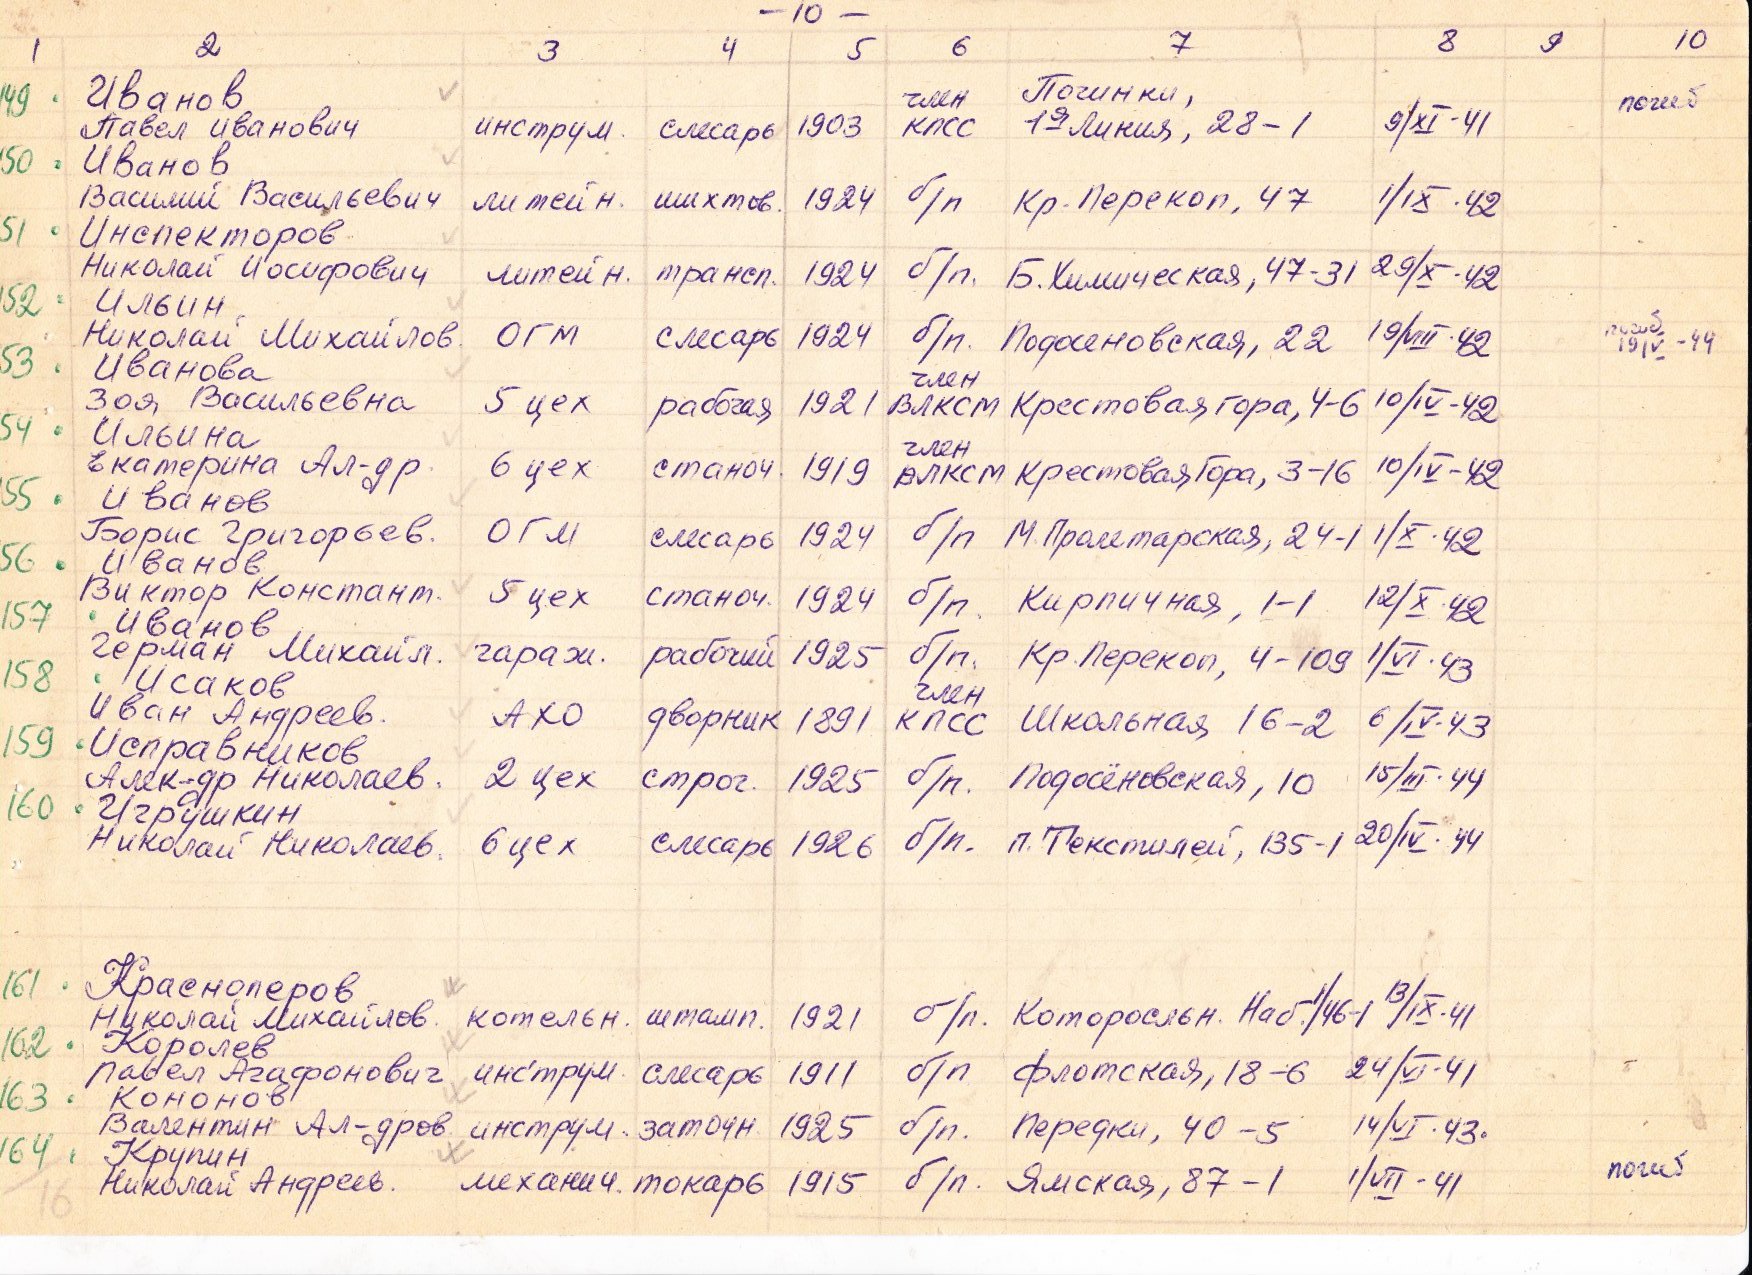 — 10 —
1 2 3 4 5 6 7 8 9 10
149 . Иванов член Починки, погиб
Павел Иванович инструм. слесарь 1903 КПСС 1я Линия, 28-1 9/XI-41
150 . Иванов
Василий Васильевич литейн. шихтов. 1924 б/п Кр. Перекоп, 47 1/IX-42
51 . Инспекторов
Николай Иосифович литейн. трансп. 1924 б/п. Б. Химическая, 47-31 29/X-42
152 . Ильин погиб
Николай Михайлов. ОГМ слесарь 1924 б/п. Подосеновская, 22 19/VIII-42 19 IV -44
53 . Иванова член
Зоя Васильевна 5 цех рабочая 1921 ВЛКСМ Крестовая гора, 4-6 10/IV-42
54 . Ильина член
Екатерина Ал-др. 6 цех станоч. 1919 ВЛКСМ Крестовая Гора, 3-16 10/IV-42
55 . Иванов
Борис Григорьев. ОГМ слесарь 1924 б/п М. Пролетарская, 24-1 1/X-42
56 . Иванов
Виктор Констант. 5 цех станоч. 1924 б/п. Кирпичная, 1-1 12/X-42
157 . Иванов
Герман Михайл. гараж. рабочий 1925 б/п. Кр. Перекоп, 4-109 1/VI-43
158 . Исаков член
Иван Андреев. АХО дворник 1891 КПСС Школьная 16-2 6/IV-43
159 . Исправников
Алек-др Николаев. 2 цех строг. 1925 б/п. Подосёновская, 10 15/III-44
160 . Игрушкин
Николай Николаев. 6 цех слесарь 1926 б/п. п. Текстилей, 135-1 20/IV-44
161 . Красноперов
Николай Михайлов. котельн. штамп. 1921 б/п. Которосльн. Наб. 1/46-1 13/IX-41
162 . Королев
Павел Агафонович инструм. слесарь 1911 б/п Флотская, 18-6 24/VI-41
163 . Кононов
Валентин Ал-дров инструм. заточн. 1925 б/п. Передки, 40-5 14/VI-43.
164 . Крупин погиб
Николай Андреев. механич. токарь 1915 б/п. Ямская, 87-1 1/VII-41
16